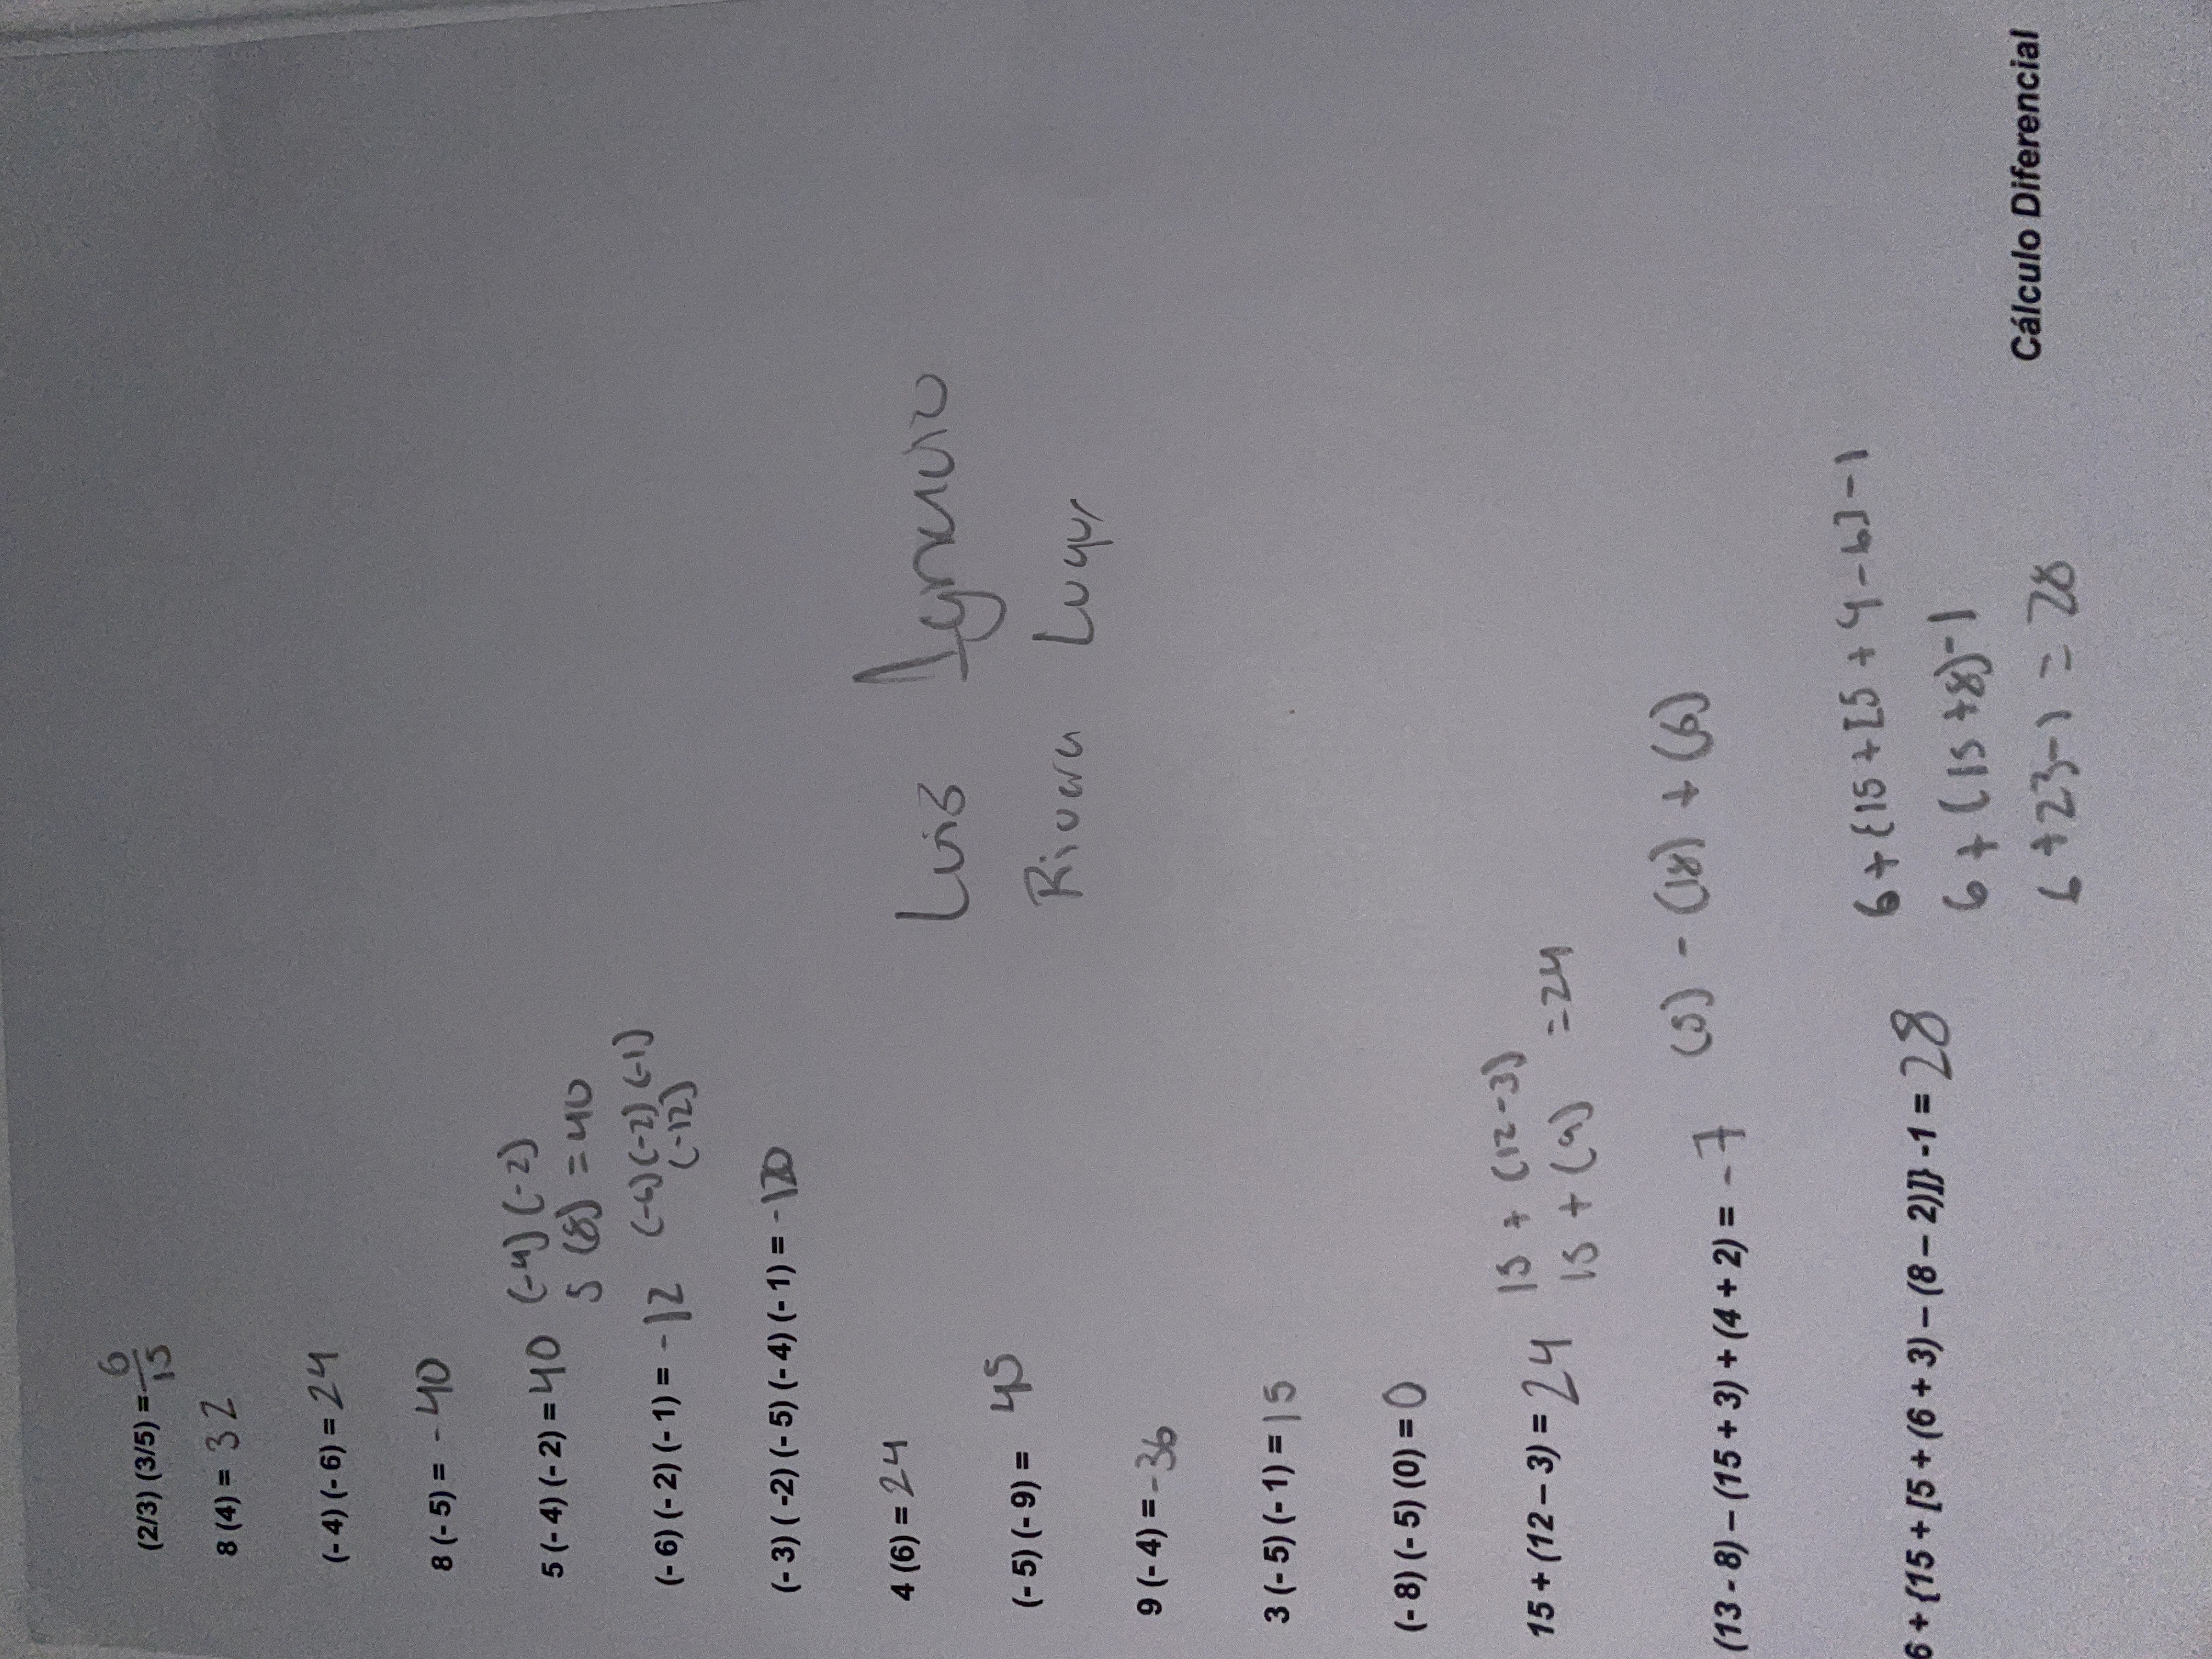 (2/3) (3/5) = 6/15
8 (4) = 32
(- 4) (- 6) = 24
8 (- 5) = - 40
5 (- 4) (- 2) = 40 (-4) (-2)
5 (8) = 40
(- 6) (- 2) (- 1) = - 12 (-6) (-2) (-1)
(-12)
(- 3) ( -2) (- 5) (- 4) (- 1) = - 120
4 (6) = 24
Luis
(- 5) (- 9) = 45
Rivera
9 (- 4) = -36
3 (- 5) (- 1) = 15
(- 8) (- 5) (0) = 0
15 + (12 – 3) = 24 15 + (12 - 3)
15 + (9) = 24
(13 - 8) – (15 + 3) + (4 + 2) = - 7 (5) - (18) + (6)
6 + {15 + [5 + (6 + 3) – (8 – 2)]} -1 = 28 6 + {15 + [5 + 9 - 6] - 1
6 + (15 + 8) - 1
6 + 23 - 1 = 28
Cálculo Diferencial